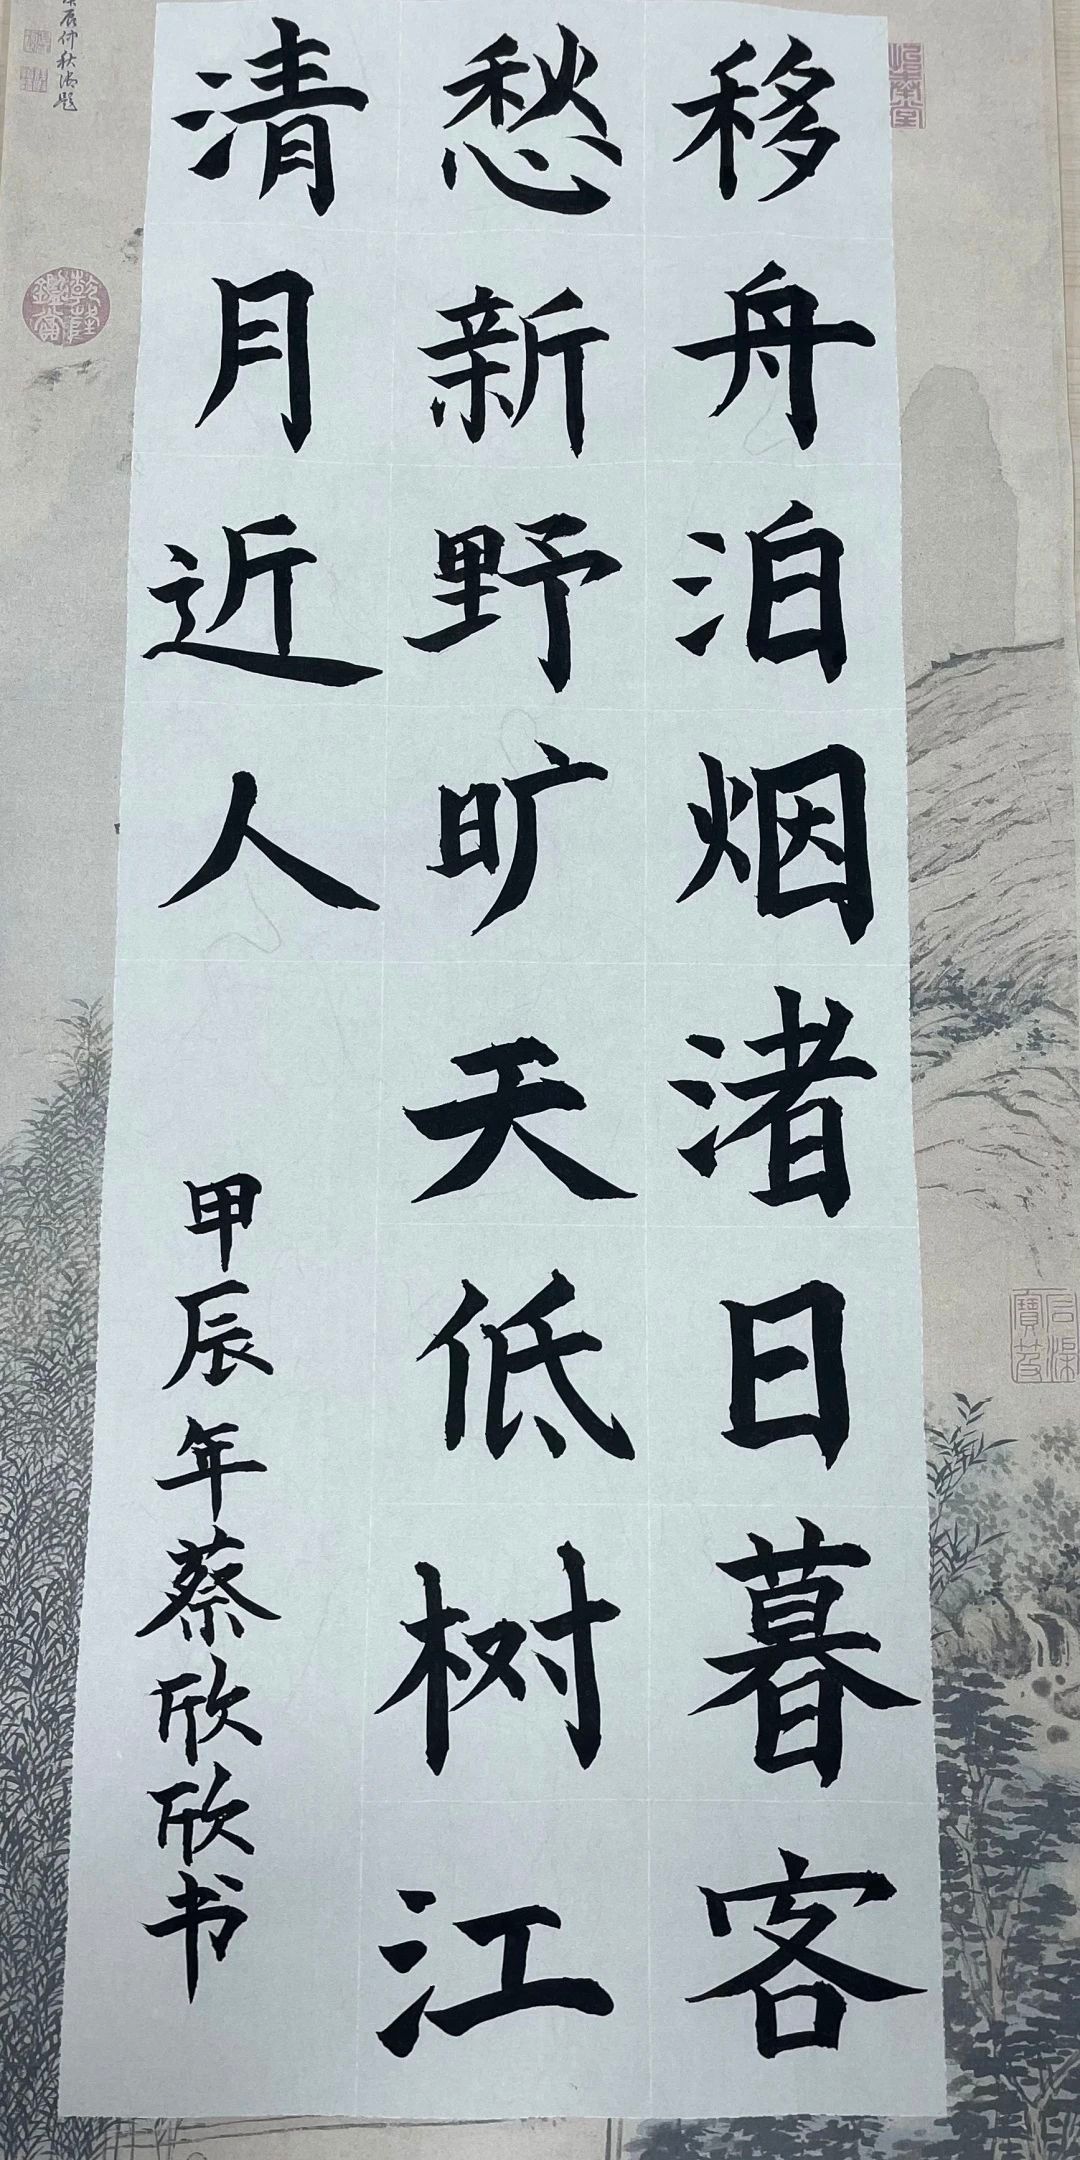 移舟泊烟渚日暮客
愁新野旷天低树江
清月近人
甲辰年蔡欣欣书
乾隆鑑赏